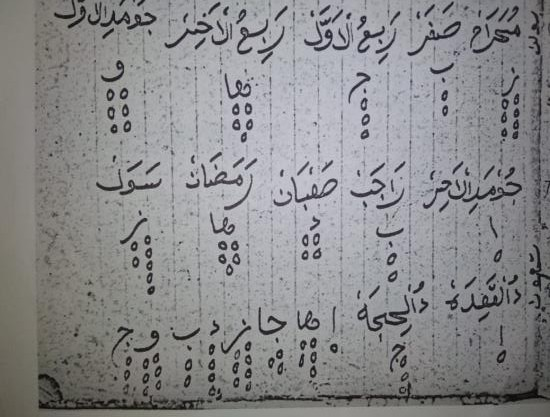 مُحَرَامْ صَفَرْ رَبِيعُ الْاَوَّلْ رَبِيعُ الْاَخِيرْ جُومَدِالْاَوَّلْ
ز ب ج ها و
جُومَدِالْاَخِرْ رَاجَبْ صَعْبَانْ رَمَضَانْ سَوَلْ
ا ب د ها ز
ذُالْقَعِدَةْ ذُالْحِجَةْ
ا ج ا ها جا ز د ب و ج